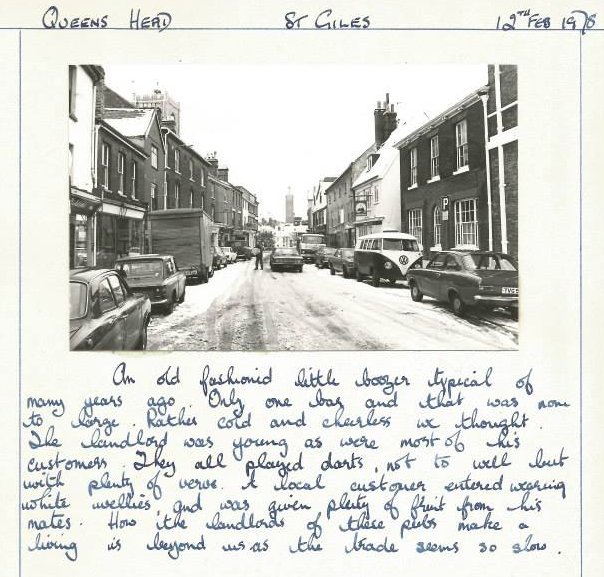 QUEENS HEAD ST GILES 12TH FEB 1978
P
An old fashionid little boozer typical of
many years ago. Only one bar and that was none
to large. Rather cold and cheerless we thought.
The landlord was young as were most of his
customers. They all played darts, not to well but
with plenty of verve. A local customer entered wearing
white wellies, and was given plenty of fruit from his
mates. How the landlords of these pubs make a
living is beyond us as the trade seems so slow.